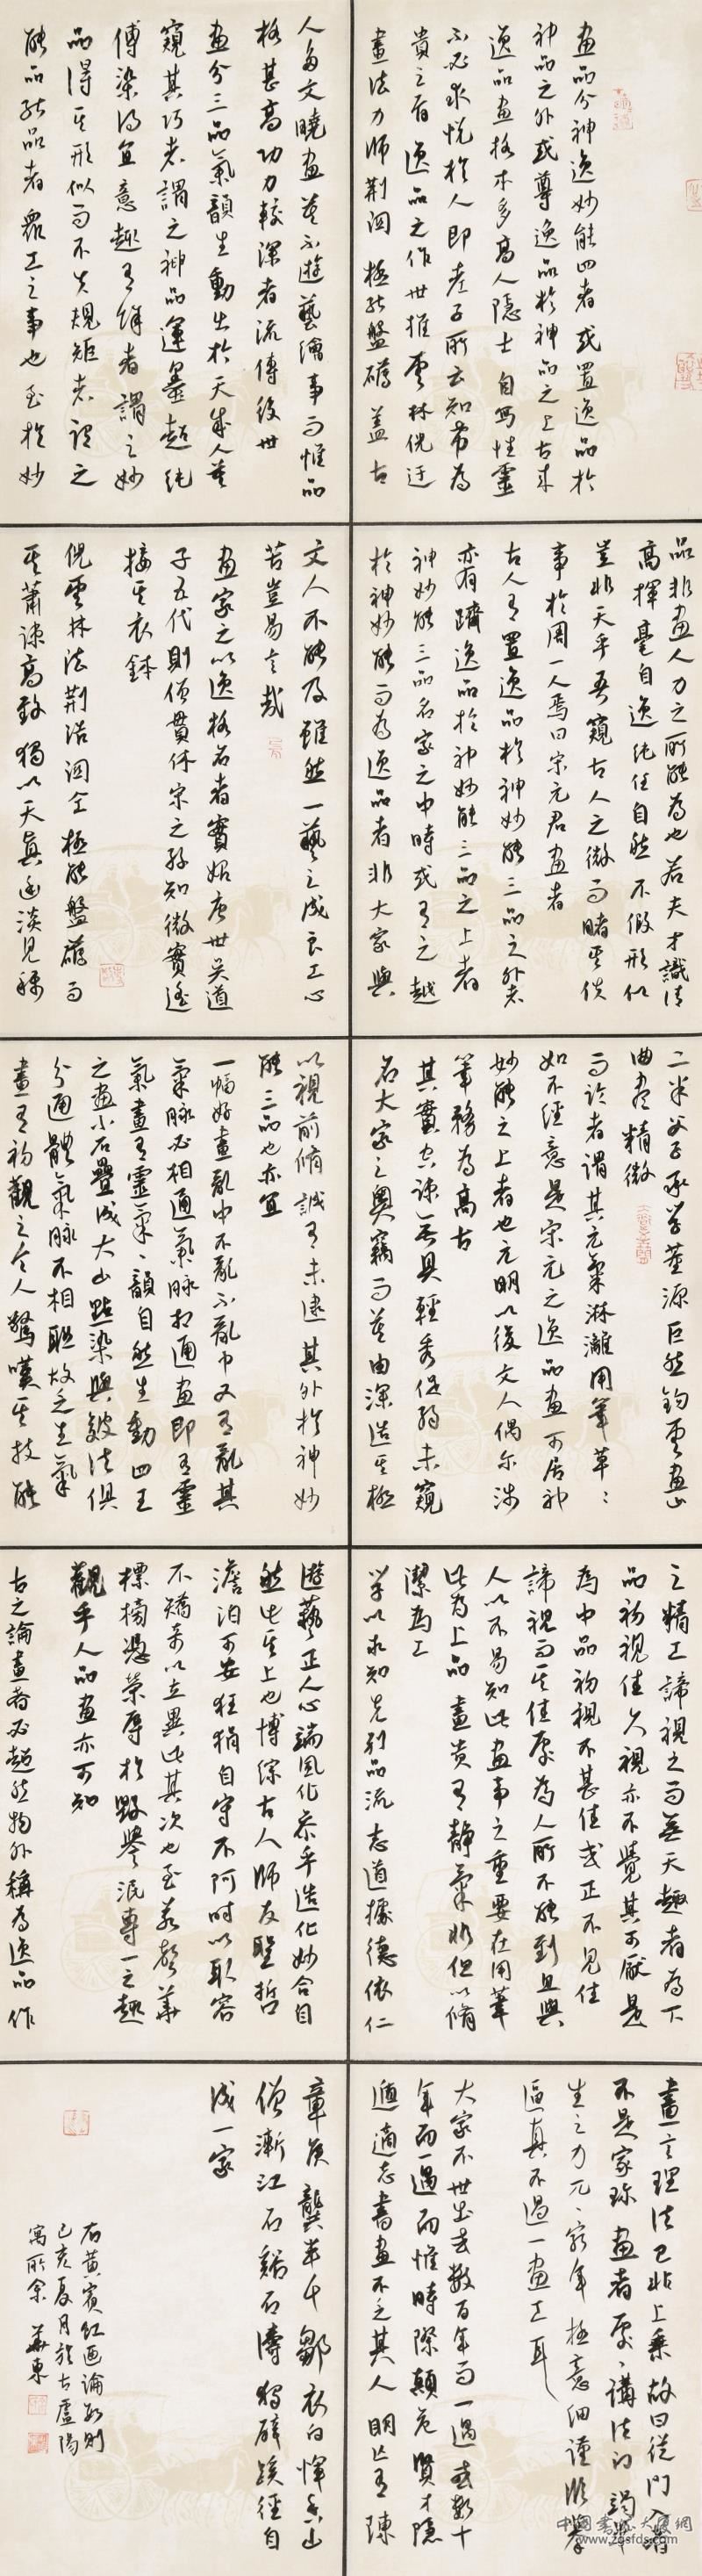 画品分神逸妙能四者或置逸品於
神品之外或尊逸品於神品之上古来
逸品画格本多高人隐士自写性靈
不必求悦於人即老子所云知希為
貴之旨逸品之作世推雲林倪迂
畫法力师荆関極能盤礴盖古
人多文曉画其不遊藝繪事而惟品
格甚高功力較深者流傳後世
画分三品氣韻生動出於天成人莫
窺其巧者謂之神品運墨超絶
傅染得宜意趣有餘者謂之妙
品得其形似而不失規矩者謂之
能品能品者衆工之事也至於妙
品非画人力之所能為也若夫才識清
高揮毫自逸純任自然不假形似
豈非天乎吾窺古人之微而睹其佚
事於周一人焉曰宋元君画者
古人有置逸品於神妙能三品之外者
亦有躋逸品於神妙能三品之上者
神妙能三品名家之中時或有之越
於神妙能而為逸品者非大家與
文人不能及雖然一藝之成良工心
苦豈易言哉
画家之以逸格名者實始唐世吴道
子五代則僧貫休宋之孫知微實遙
接其衣鉢
倪雲林法荆浩関仝極能盤礴而
其蕭疎高致獨以天真幽淡見称
二米父子承学董源巨然鈎雲画山
曲盡精微
而论者謂其元氣淋漓用筆草〻
如不經意是宋元之逸品画可居神
妙能之上者也元明以後文人偶尔涉
筆務為高古
其實空疎一无具輕秀促弱未窺
名大家之奥竅而莫由深造其極
以視前脩誠有未逮其外於神妙
能三品也亦宜
一幅好畫亂中不亂不亂中又有亂其
氣脉必相通氣脉相通画即有靈
氣畫有靈氣〻韻自然生動四王
之画小石疊成大山點染與皴法俱
分通體氣脉不相聯故乏生氣
畫有初觀之令人驚嘆其技能
之精工諦視之而無天趣者為下
品初視佳久視亦不覺其可厭是
為中品初視不甚佳或正不見佳
諦視而其佳處為人所不能到且與
人以不易知此画事之重要在用筆
此為上品畫贵有静氣非但以脩
潔為工
学以求知先别品流志道據德依仁
遊藝正人心端風化參乎造化妙合自
然此其上也博综古人師友聖哲
澹泊可安狂狷自守不阿时以取容
不矯奇以立異此其次也至若聲華
標榜憑榮辱於毀譽泯專一之趣
觀乎人品画亦可知
古之論畫者必超然物外稱為逸品作
畫言理法已非上乘故曰從門入者
不是家珍画者處〻講法则竭畢
生之力兀〻窮年極意細謹临摹
逼真不過一画工耳
大家不世出或数百年而一遇或数十
年而一遇而惟時際顛危賢才隐
遁適志書画不乏其人明亡有陳
章侯龔半千鄒衣白惲香山
僧漸江石谿石濤獨辟蹊徑自
成一家
右黄賓虹画論数则
己亥夏月於古盧陽
寓所余華東
中国書法大厦網
www.zgsfds.com